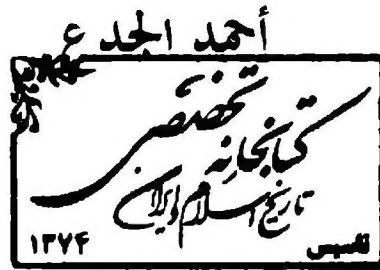 أحمد الجدع
کتابخانه تخصصی
تاریخ اسلام و ایران
تاسیس ۱۳۷۴